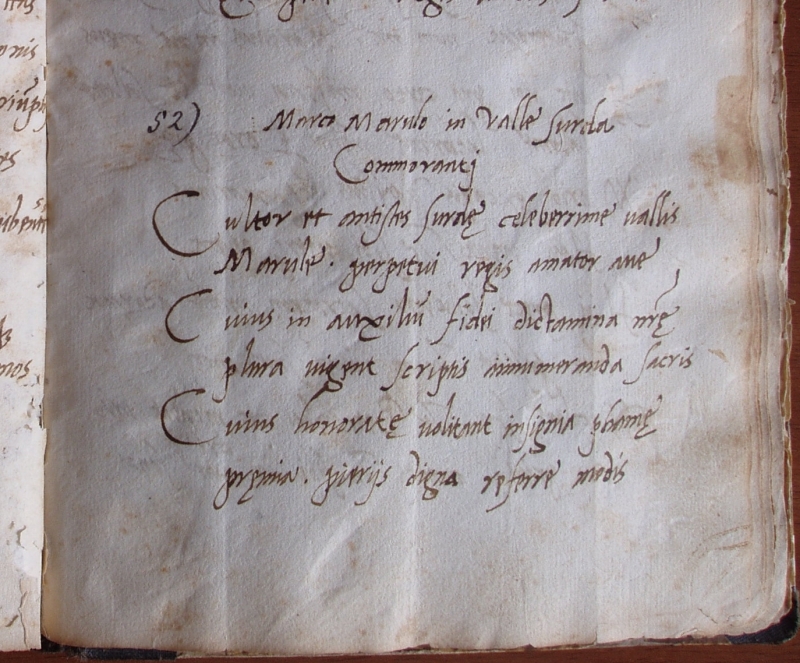 itas
onis
52)
Marco Marulo in Valle surda
Commoranti
Cultor et antistes surdę celeberrime vallis
Marule. perpetui regis amator ave
Cuius in auxiliũ fidei dictamina nr̃ę
plura vigent scriptis annumeranda sacris
Cuius honoratę volitant insignia phamę
pręmia. pierijs digna referre modis